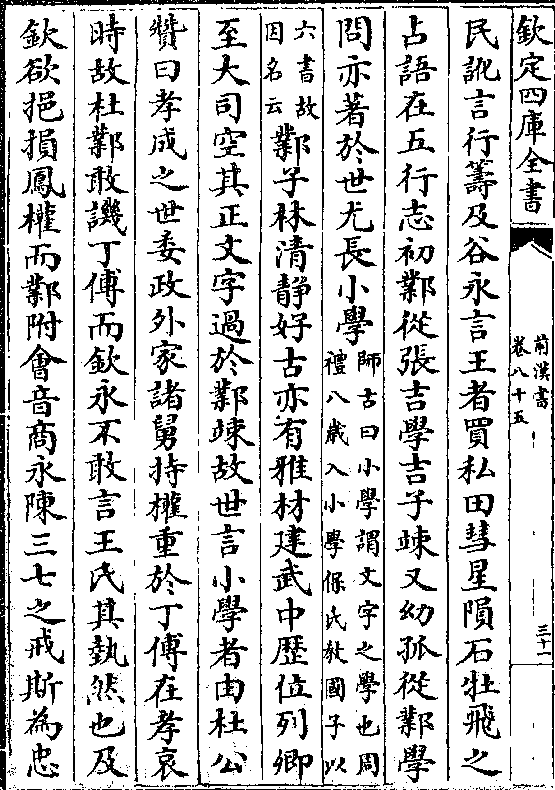 欽定四庫全書
前漢書
卷八十五
三十一
民訛言行籌及谷永言王者買私田彗星隕石牡飛之
占語在五行志初鄴從張吉學吉子竦又幼孤從鄴學
問亦著於世尤長小學師古曰小學謂文字之學也周
禮八歲入小學保氏敎國子以
六書故
因名云鄴子林清靜好古亦有雅材建武中歷位列卿
至大司空其正文字過於鄴竦故世言小學者由杜公
贊曰孝成之世委政外家諸舅持權重於丁傅在孝哀
時故杜鄴敢譏丁傅而欽永不敢言王氏其埶然也及
欽欲挹損鳳權而鄴附會音商永陳三七之戒斯為忠